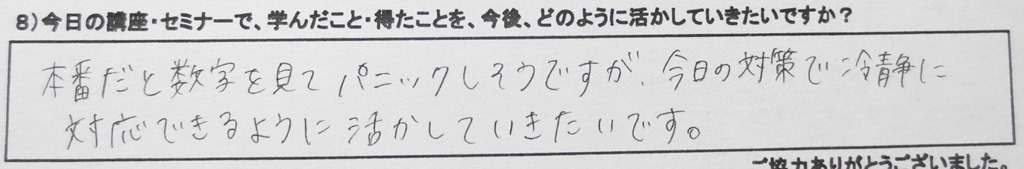 8)今日の講座・セミナーで、学んだこと・得たことを、今後、どのように活かしていきたいですか?
本番だと数字を見てパニックしそうですが、今日の対策で冷静に
対応できるように活かしていきたいです。
ご協力ありがとうございました。